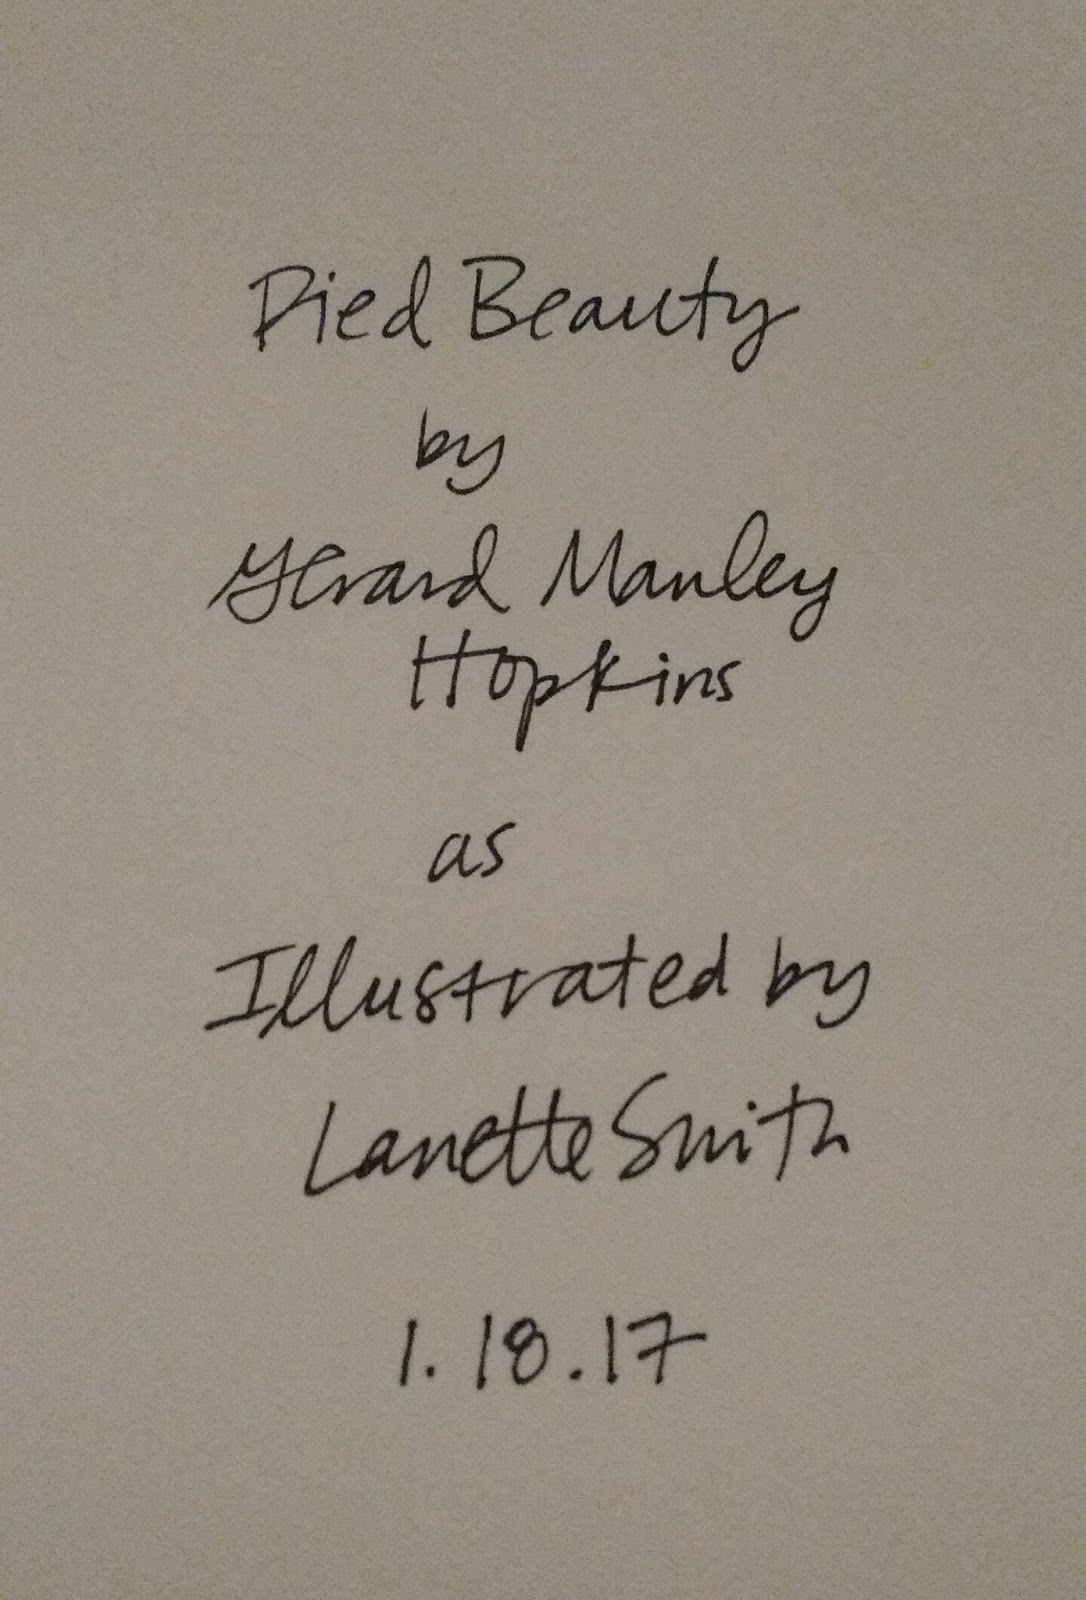 Pied Beauty
by
Gerard Manley
Hopkins
as
Illustrated by
Lanette Smith
1.18.17